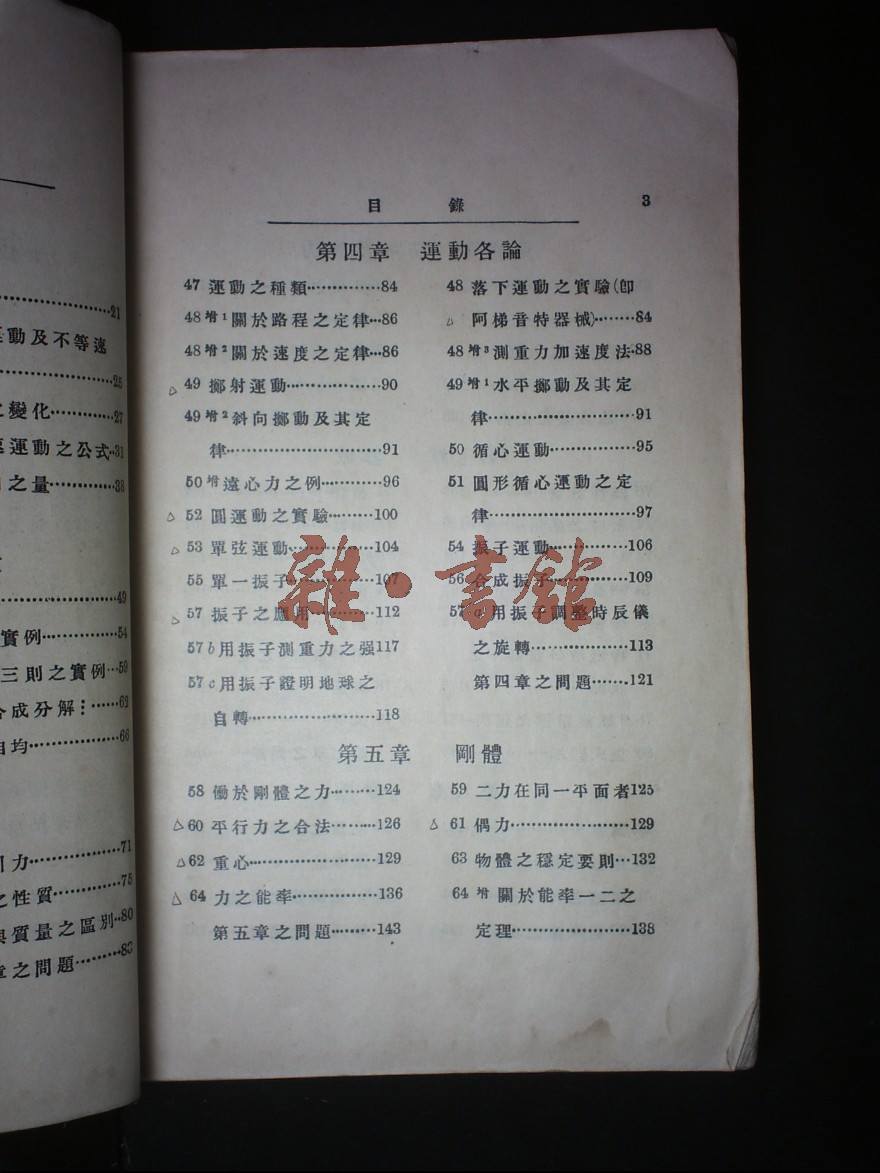 21
動及不等速
25
變化⋯⋯27
運動之公式⋯31
之量⋯⋯38
49
實例⋯⋯54
三則之實例⋯59
合成分解⋯62
自均⋯⋯66
引力⋯⋯71
之性質⋯⋯75
與質量之區別⋯80
章之問題⋯⋯83
目 錄 3
第四章 運動各論
47 運動之種類⋯⋯84
48 落下運動之實驗(卽
阿梯音特器械)⋯⋯84
48增1關於路程之定律⋯86
48增2關於速度之定律⋯86
48增3測重力加速度法⋯88
△49 擲射運動⋯⋯90
49增1水平擲動及其定
律⋯⋯91
49增2斜向擲動及其定
律⋯⋯91
50 循心運動⋯⋯95
50增遠心力之例⋯⋯96
51 圓形循心運動之定
律⋯⋯97
△52 圓運動之實驗⋯⋯100
△53 單弦運動⋯⋯104
54 振子運動⋯⋯106
55 單一振子⋯⋯107
56 合成振子⋯⋯109
△57 振子之應用⋯⋯112
57 a用振子調整時辰儀
之旋轉⋯⋯113
57 b用振子測重力之强117
57 c用振子證明地球之
自轉⋯⋯118
第四章之問題⋯⋯121
第五章 剛體
58 働於剛體之力⋯⋯124
59 二力在同一平面者125
△60 平行力之合法⋯⋯126
△61 偶力⋯⋯129
△62 重心⋯⋯129
63 物體之穩定要則⋯132
△64 力之能率⋯⋯136
64增關於能率一二之
定理⋯⋯138
第五章之問題⋯⋯143
雜·書館